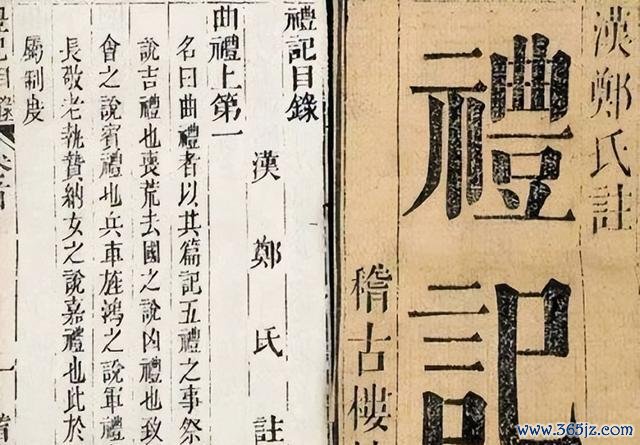 漢鄭氏註
禮記
稽古樓
禮記目錄
漢鄭氏註
曲禮上第一
名曰曲禮者以其篇記五禮之事祭
說吉禮也喪荒去國之說凶禮也致
會之說賓禮也兵車旌鴻之說軍禮
長敬老執贄納女之說嘉禮也此於
屬制度
禮記目錄
一
www.365jz.com